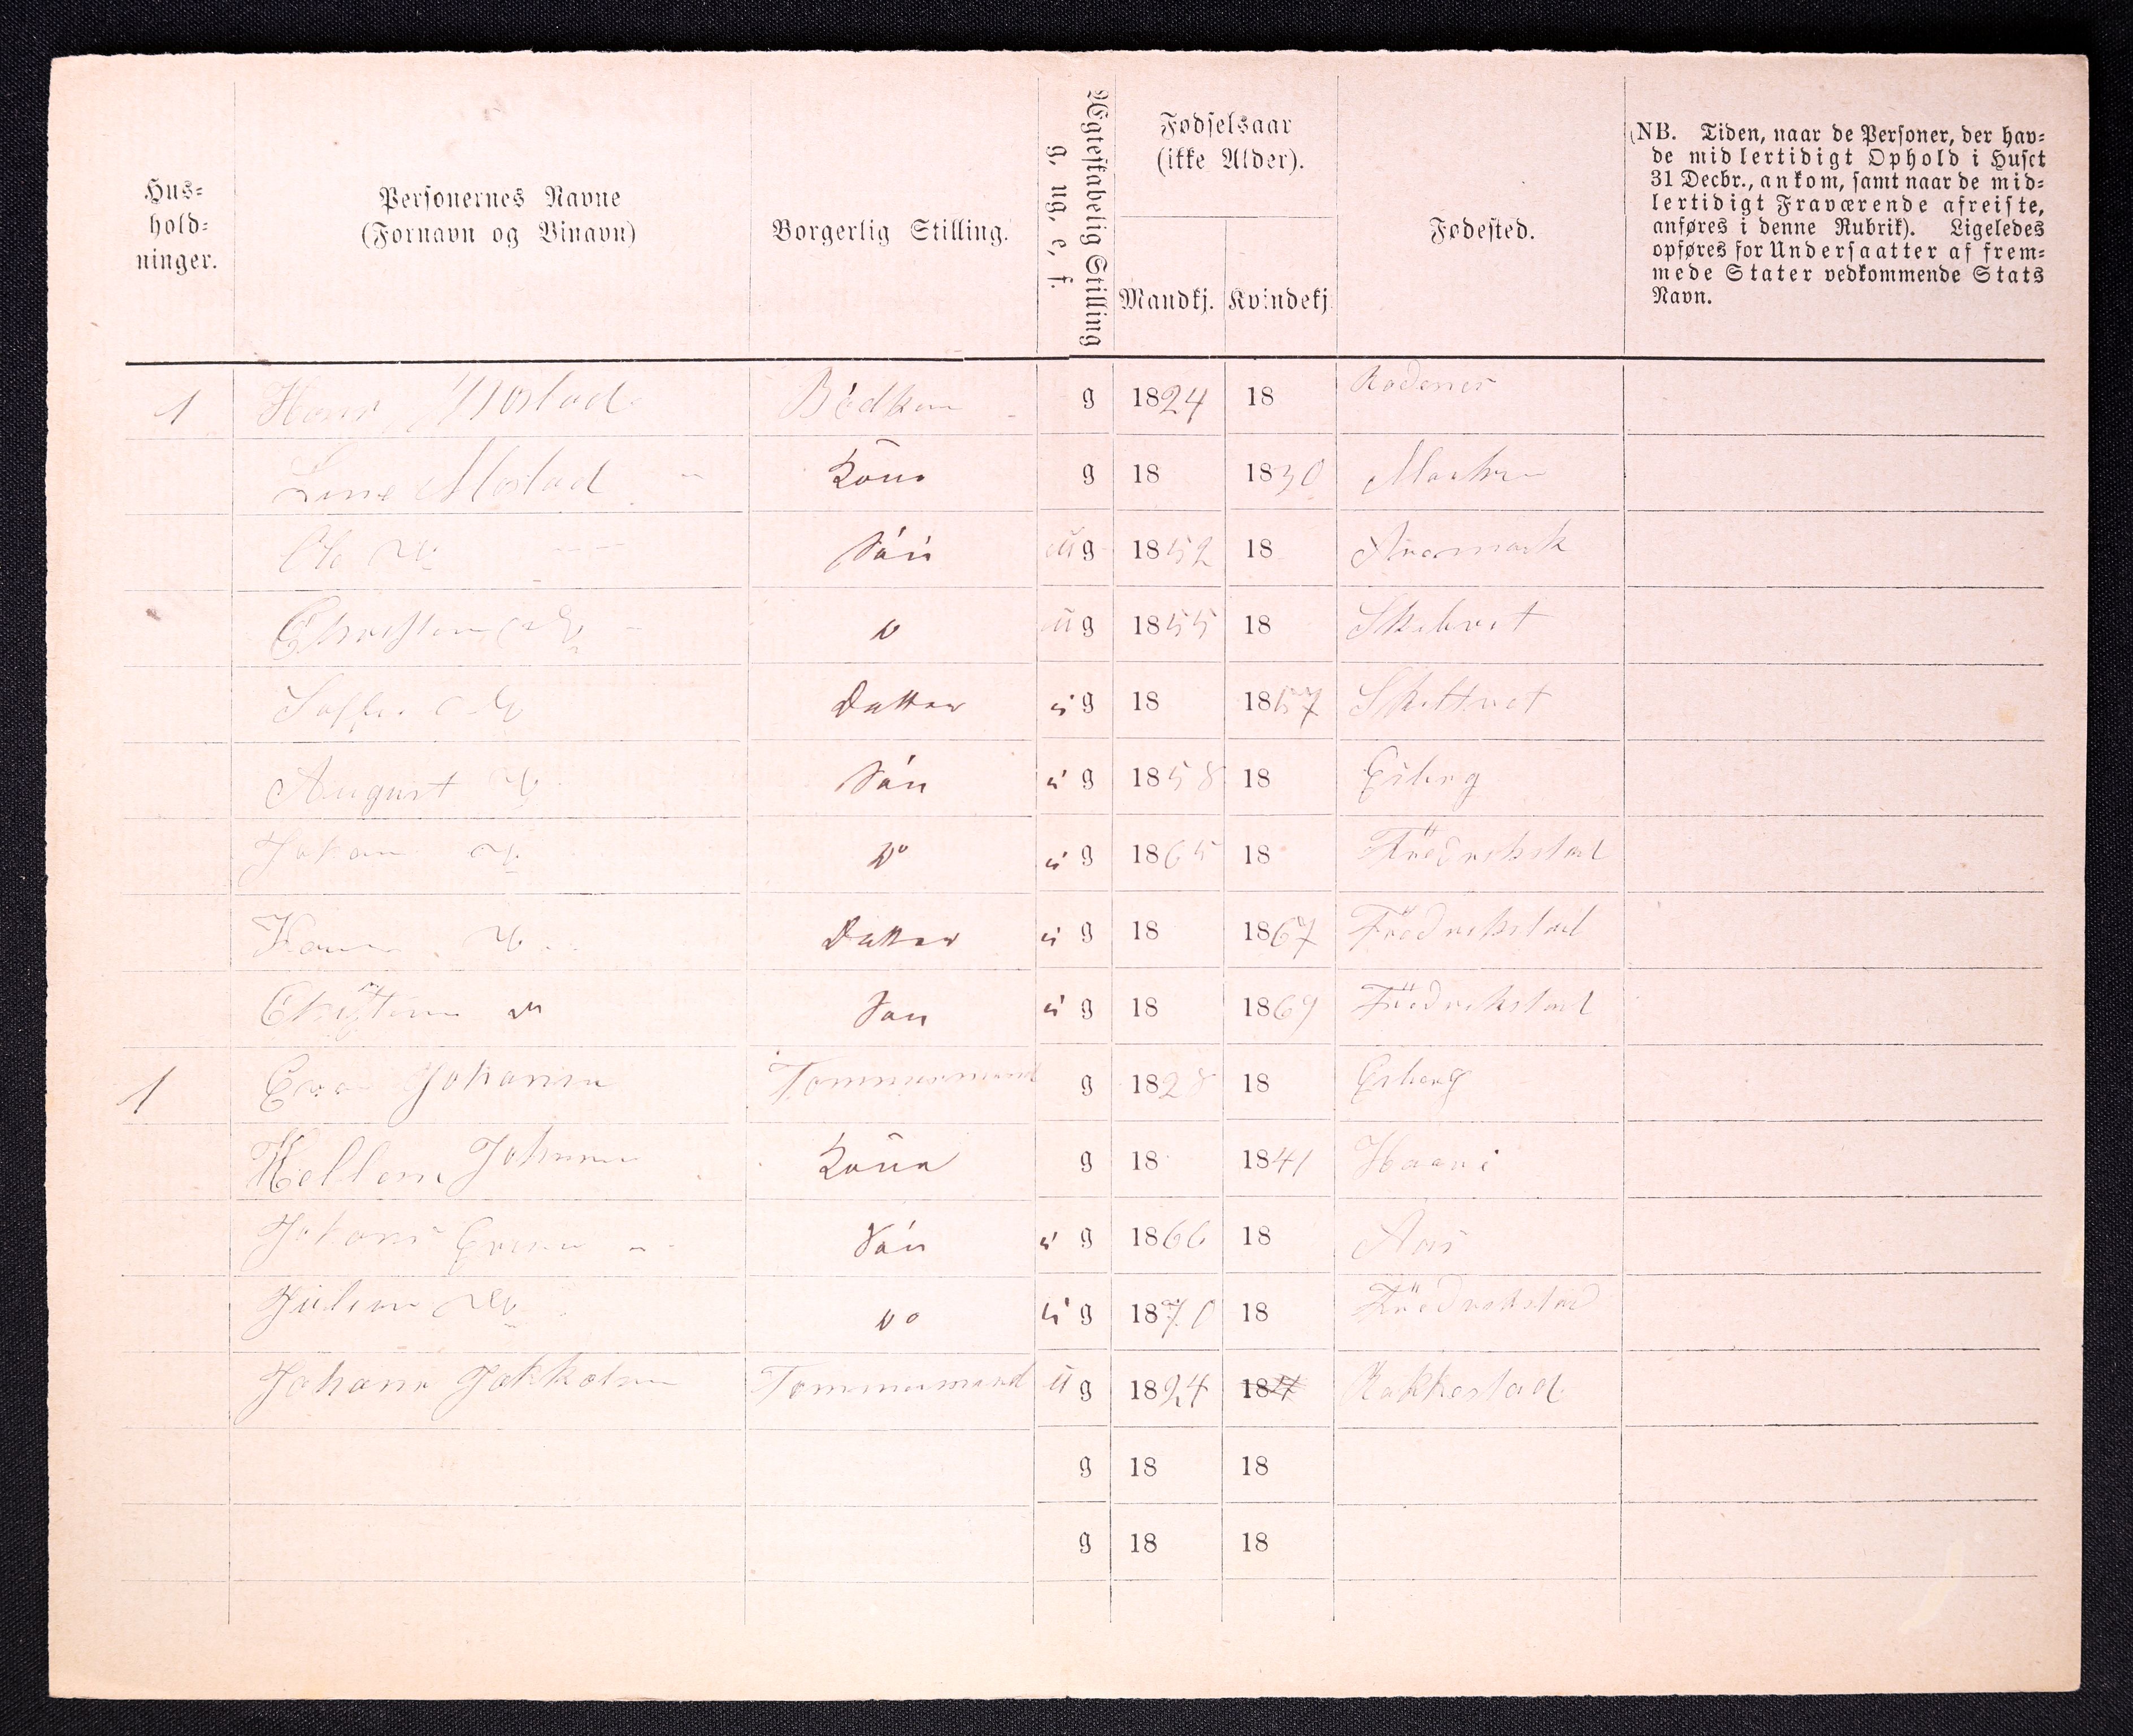 Hus=
hold=
ninger.
Personernes Navne
(Fornavn og Binavn)
Borgerlig Stilling.
Ægteskabelig Stilling
g, ug, e, f.
Fødselsaar
(ikke Alder).
Mandkj. Kvindekj.
Fødested.
(NB. Tiden, naar de Personer, der hav=
de midlertidigt Ophold i Huset
31 Decbr., ankom, samt naar de mid=
lertidigt Fraværende afreiste,
anføres i denne Rubrik). Ligeledes
opføres for Undersaatter af frem=
mede Stater vedkommende Stats
Navn.
1 Hans Mostad Bødker g 1824 18 Rødenes
Line Mostad Kone g 18 1830
Ole Do Søn ug 1852 18 Aremark
Christian Do Do ug 1855 18 Skibvet
Do Datter ug 18 1857 Skibtvet
August Do Søn ug 1858 18 Eiberg
Johan Do Do ug 1865 18 Fredrekstad
Do Datter ug 18 1867 Fredrekstad
Do Søn ug 18 1869 Fredrekstad
1 Johansen Tømmermand g 1828 18 Esberg
Johansen Kone g 18 1841
Johans Evensen Søn ug 1866 18 Aas
Do Do ug 1870 18 Fredrekstad
Johann Jakkobsen Tømmermand ug 1824 18 Rakkestad
g 18 18
g 18 18